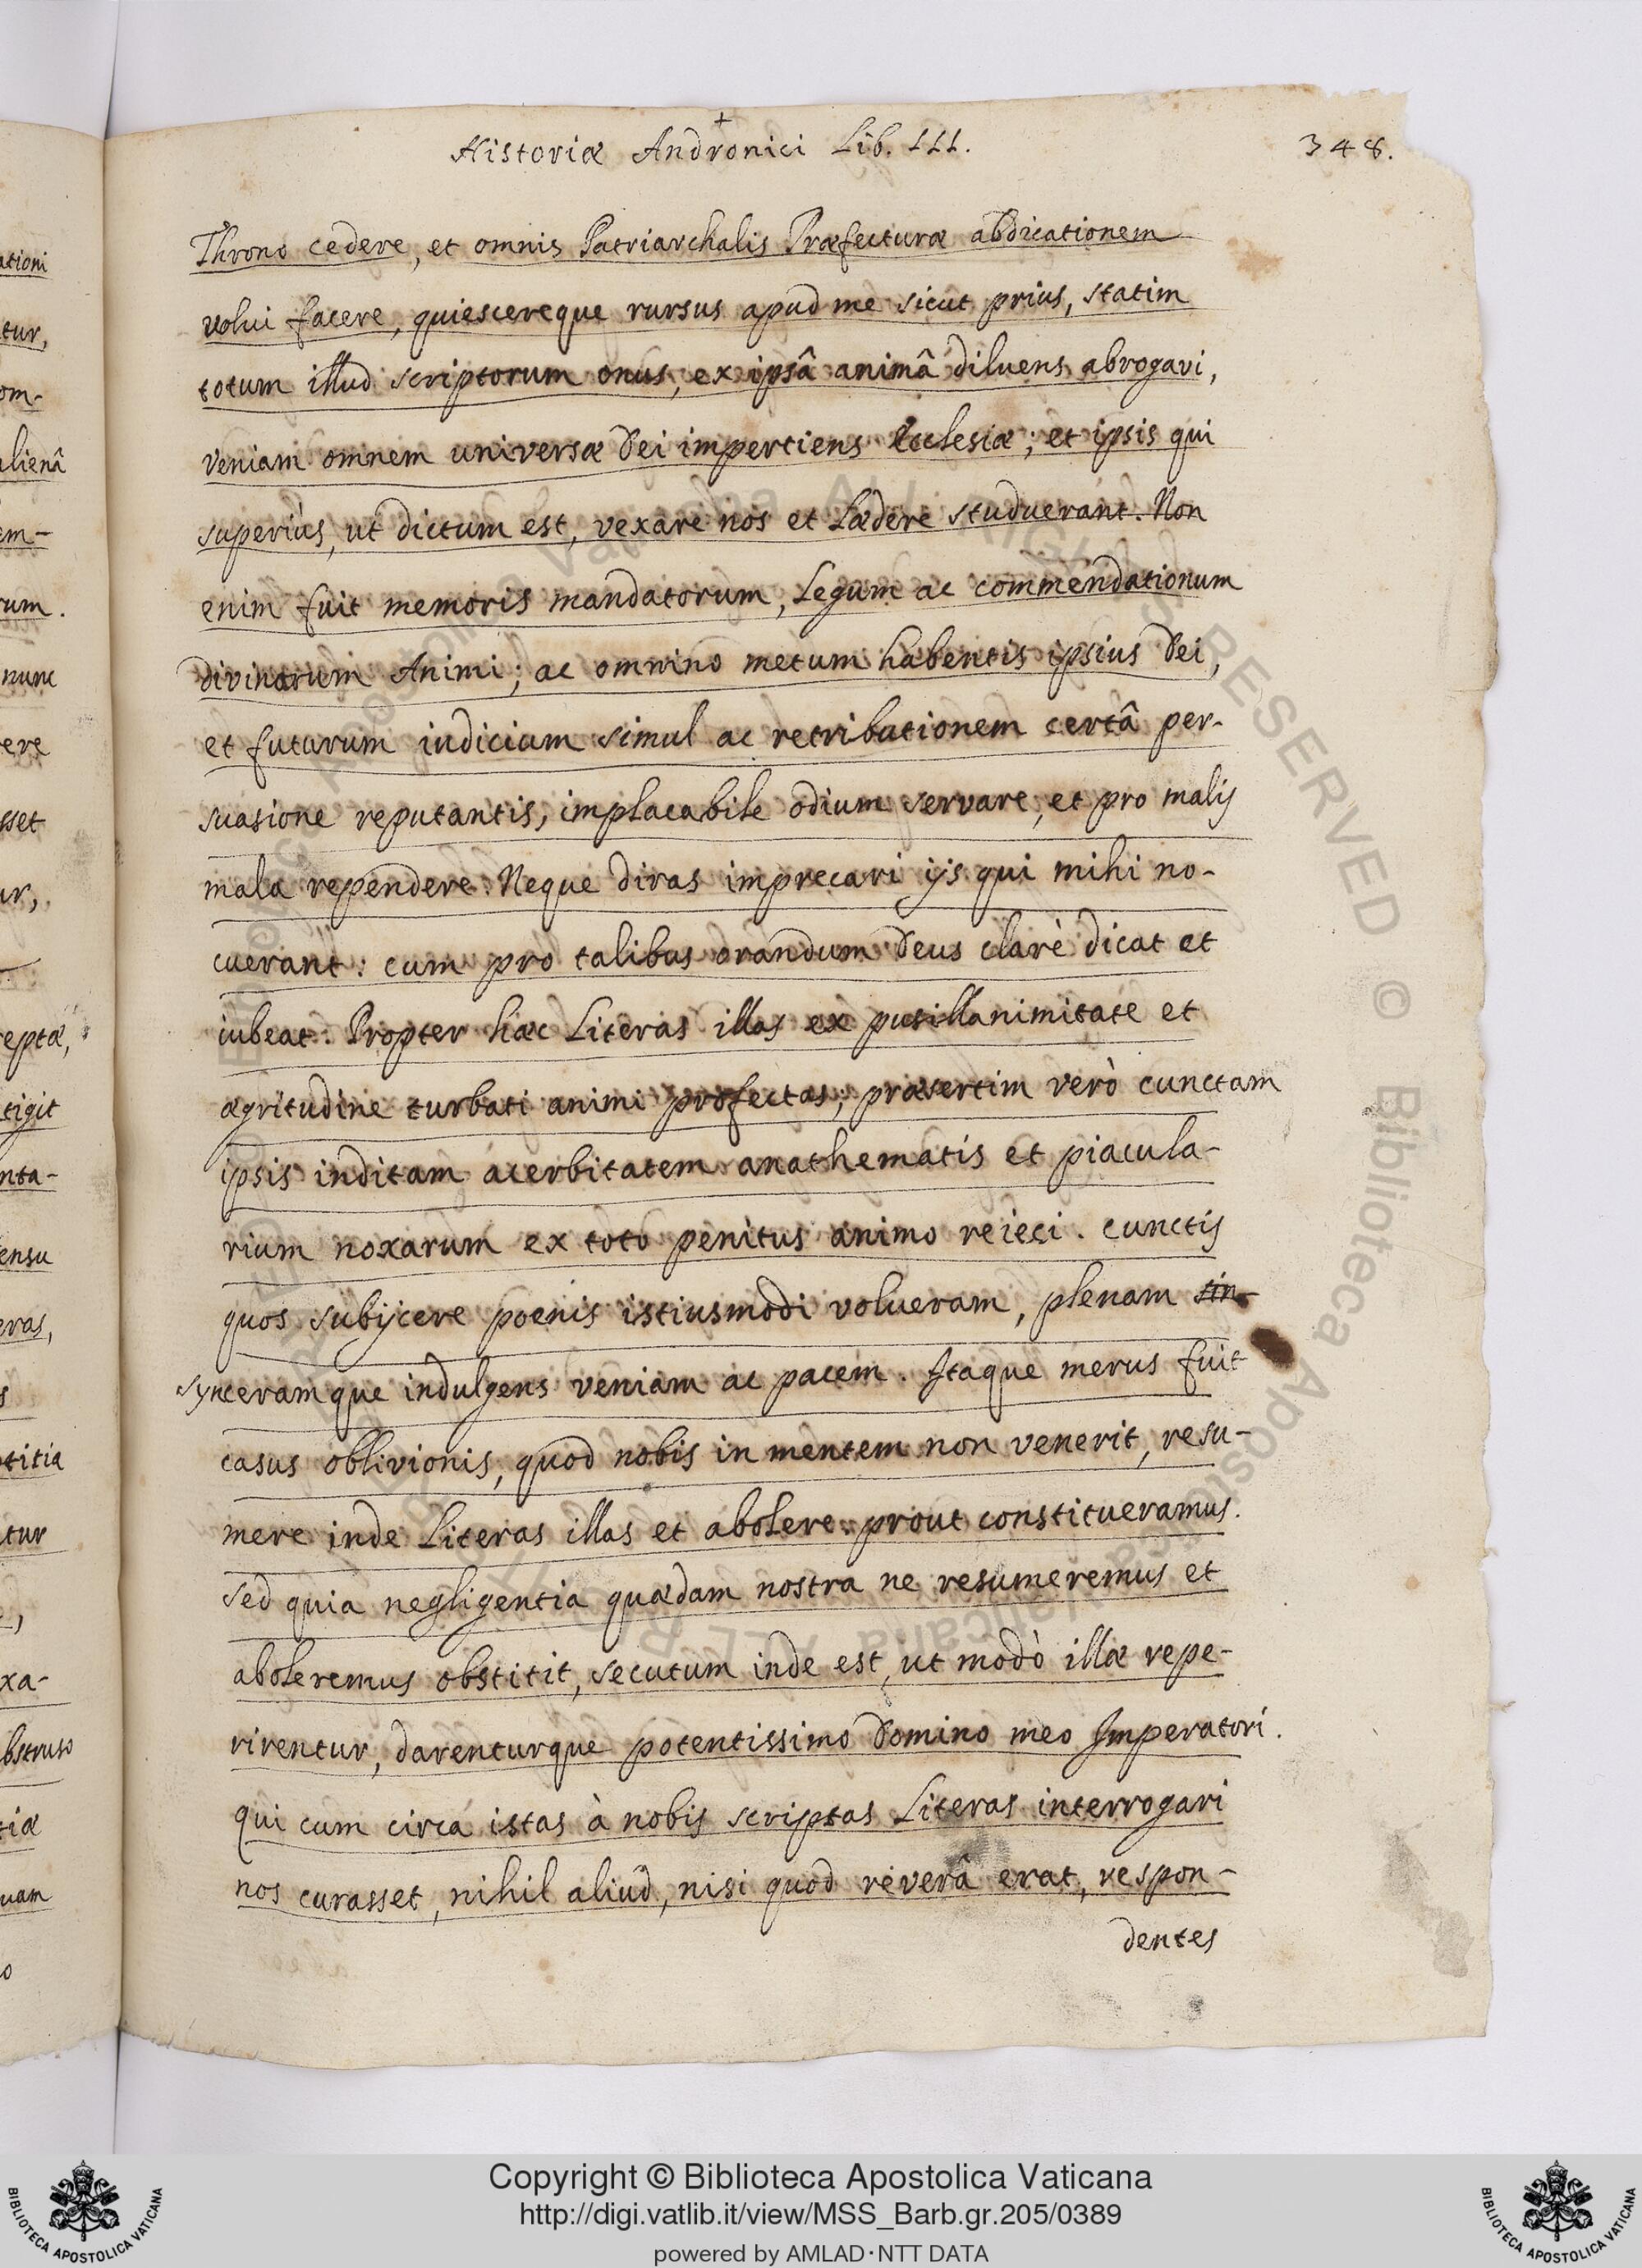 Historiæ Andronici Lib. LLL.
348.
Throno cedere, et omnis Patriarchalis Præfecturæ abdicationem
volui facere, quiescereque rursus apud me sicut prius, statim
totum illud scriptorum onus, ex ipsâ animâ diluens abrogavi,
veniam omnem universæ Dei impertiens Ecclesiæ; et ipsis qui
superiùs, ut dictum est, vexare nos et Lædere studuerant. Non
enim fuit memoris mandatorum, Legum ac commendationum
divinarum Animi; ac omnino metum habentis ipsius Dei,
et futurum iudicium simul ac retributionem certâ per-
suasione reputantis, implacabile odium servare, et pro malis
mala rependere. Neque diras imprecari ijs qui mihi no-
cuerant: cum pro talibus orandum Deus clarè dicat et
iubeat. Propter hæc Literas illas ex pusillanimitate et
ægritudine turbati animi profectas; præsertim verò cunctam
ipsis inditam acerbitatem anathematis et piacula-
rium noxarum ex toto penitus animo reieci. cunctis
quos subijcere poenis istiusmodi volueram, plenam sin-
synceramque indulgens veniam ac pacem. Itaque merus fuit
casus oblivionis, quod nobis in mentem non venerit, resu-
mere inde Literas illas et abolere prout constitueramus.
sed quia negligentia quædam nostra ne resumeremus et
aboleremus obstitit, secutum inde est, ut modò illæ repe-
rirentur, darenturque potentissimo Domino meo Imperatori.
qui cum circa istas à nobis scriptas Literas interrogari
nos curasset, nihil aliud, nisi quod reverâ erat, respon-
dentes
ationi
tur,
om-
alienâ
em-
rum.
nunc
ere
sset
ur,
eptæ,
tigit
nta-
ensu
eras,
s
titia
tur
xa-
bstruso
tiæ
uam
o
Copyright © Biblioteca Apostolica Vaticana
http://digi.vatlib.it/view/MSS_Barb.gr.205/0389
powered by AMLAD·NTT DATA
BIBLIOTECA APOSTOLICA VATICANA
BIBLIOTECA APOSTOLICA VATICANA